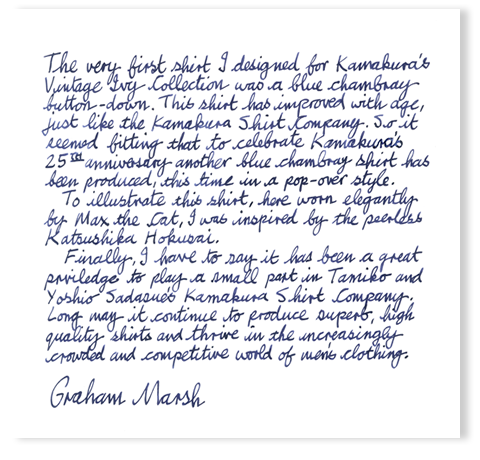 The very first shirt I designed for Kamakura's
Vintage Ivy Collection was a blue chambray
button-down. This shirt has improved with age,
just like the Kamakura Shirt Company. So it
seemed fitting that to celebrate Kamakura's
25th anniversary another blue chambray shirt has
been produced, this time in a pop-over style.
To illustrate this shirt, here worn elegantly
by Max the Cat, I was inspired by the peerless
Katsushika Hokusai.
Finally, I have to say it has been a great
priviledge to play a small part in Tamiko and
Yoshio Sadasue's Kamakura Shirt Company.
Long may it continue to produce superb, high
quality shirts and thrive in the increasingly
crowded and competitive world of men's clothing.
Graham Marsh